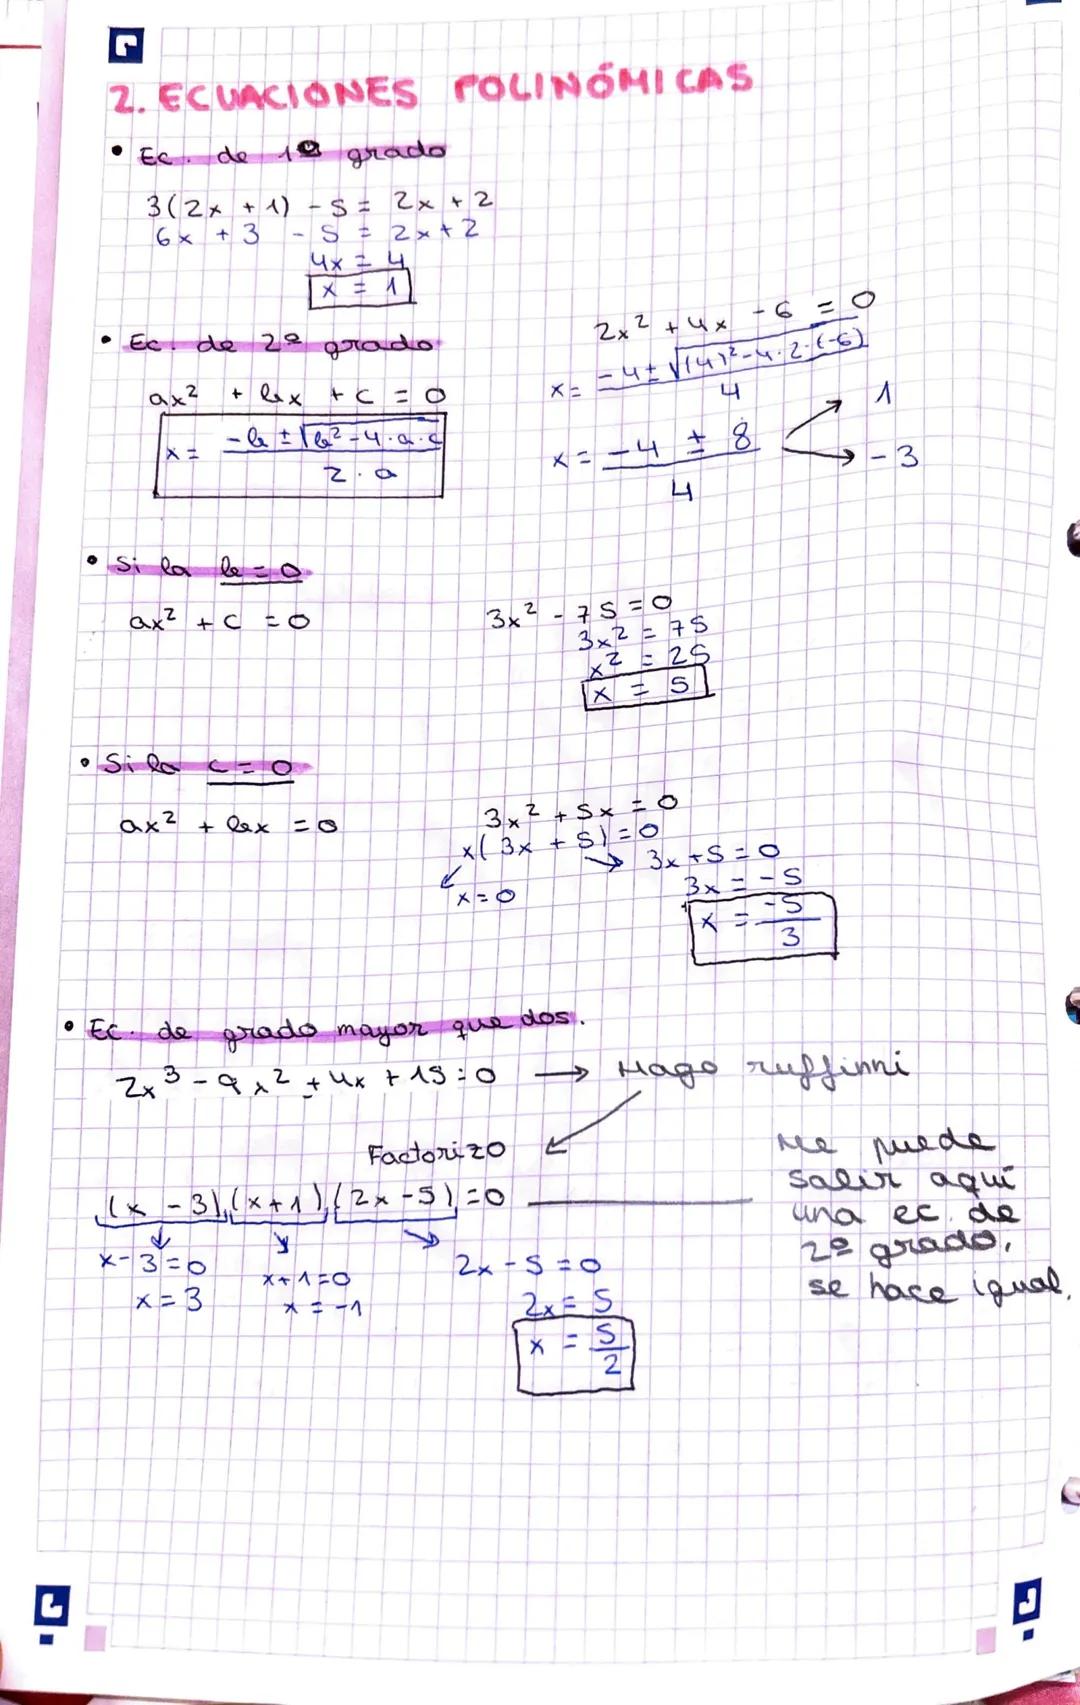 2. ECUACIONES POLINÓMICAS
• Ec. de 1º grado
3(2x + 1) - 5 = 2x + 2
6x + 3 - 5 = 2x + 2
4x = 4
x = 1
• Ec. de 2º grado
ax² + bx + c = 0
x = (-b ± √(b² - 4·a·c)) / (2·a)
2x² + 4x - 6 = 0
x = (-4 ± √((4)² - 4·2·(-6))) / 4
x = (-4 ± 8) / 4
1
-3
• Si la b = 0
ax² + c = 0
3x² - 75 = 0
3x² = 75
x² = 25
x = 5
• Si la c = 0
ax² + bx = 0
3x² + 5x = 0
x(3x + 5) = 0
x = 0
3x + 5 = 0
3x = -5
x = -5/3
• Ec. de grado mayor que dos.
2x³ - 9x² + 4x + 15 = 0 → Hago ruffinni
Factorizo
(x - 3)·(x + 1)·(2x - 5) = 0
x - 3 = 0
x = 3
x + 1 = 0
x = -1
2x - 5 = 0
2x = 5
x = 5/2
Me puede
salir aquí
una ec. de
2º grado,
se hace igual.